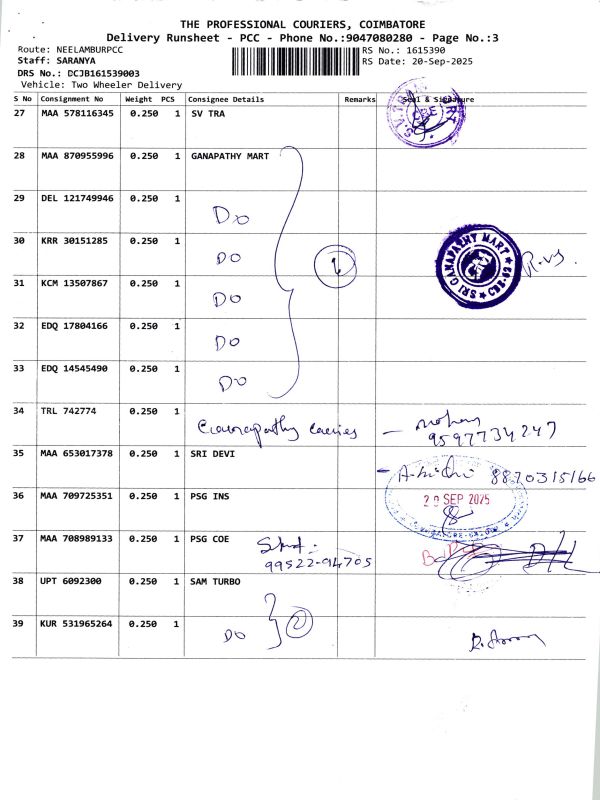 THE PROFESSIONAL COURIERS, COIMBATORE
Delivery Runsheet - PCC - Phone No.:9047080280 - Page No.:3
Route: NEELAMBURPCC
RS No.: 1615390
Staff: SARANYA
RS Date: 20-Sep-2025
DRS No.: DCJB161539003
Vehicle: Two Wheeler Delivery
S No Consignment No Weight PCS Consignee Details Remarks Seal & Signature
27 MAA 578116345 0.250 1 SV TRA
CBE
28 MAA 870955996 0.250 1 GANAPATHY MART
29 DEL 121749946 0.250 1 Do
30 KRR 30151285 0.250 1 DO
SRI GANAPATHY MART CBE-62
31 KCM 13507867 0.250 1 DO
32 EDQ 17804166 0.250 1 DO
33 EDQ 14545490 0.250 1 DO
34 TRL 742774 0.250 1
9597734247
35 MAA 653017378 0.250 1 SRI DEVI
8870315166
36 MAA 709725351 0.250 1 PSG INS
20 SEP 2025
37 MAA 708989133 0.250 1 PSG COE
99522-94705
38 UPT 6092300 0.250 1 SAM TURBO
39 KUR 531965264 0.250 1 DO
2